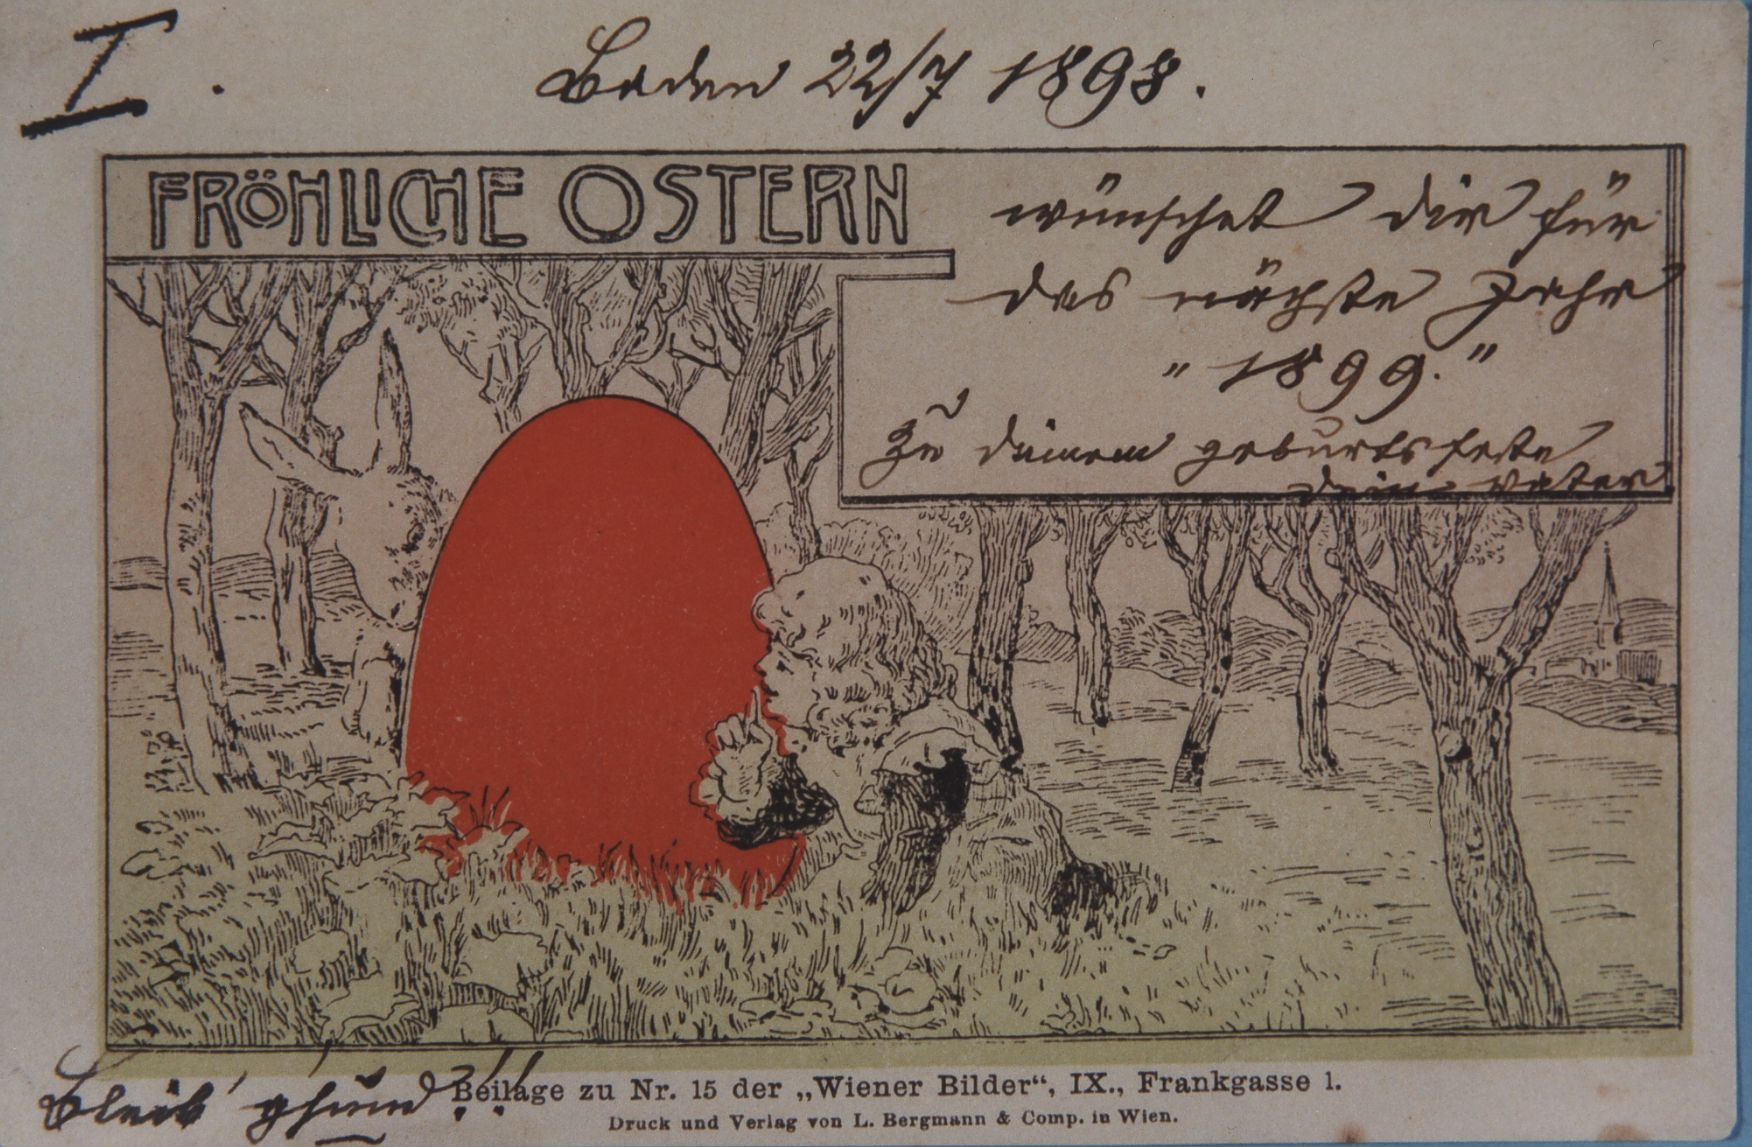 I.
Baden 22/7 1898.
FRÖHLICHE OSTERN
wünschet dir für
das nächste Jahr
„1899."
zu deinem geburtsfeste
dein vater
Bleib' gsund!!
Beilage zu Nr. 15 der „Wiener Bilder“, IX., Frankgasse 1.
Druck und Verlag von L. Bergmann & Comp. in Wien.